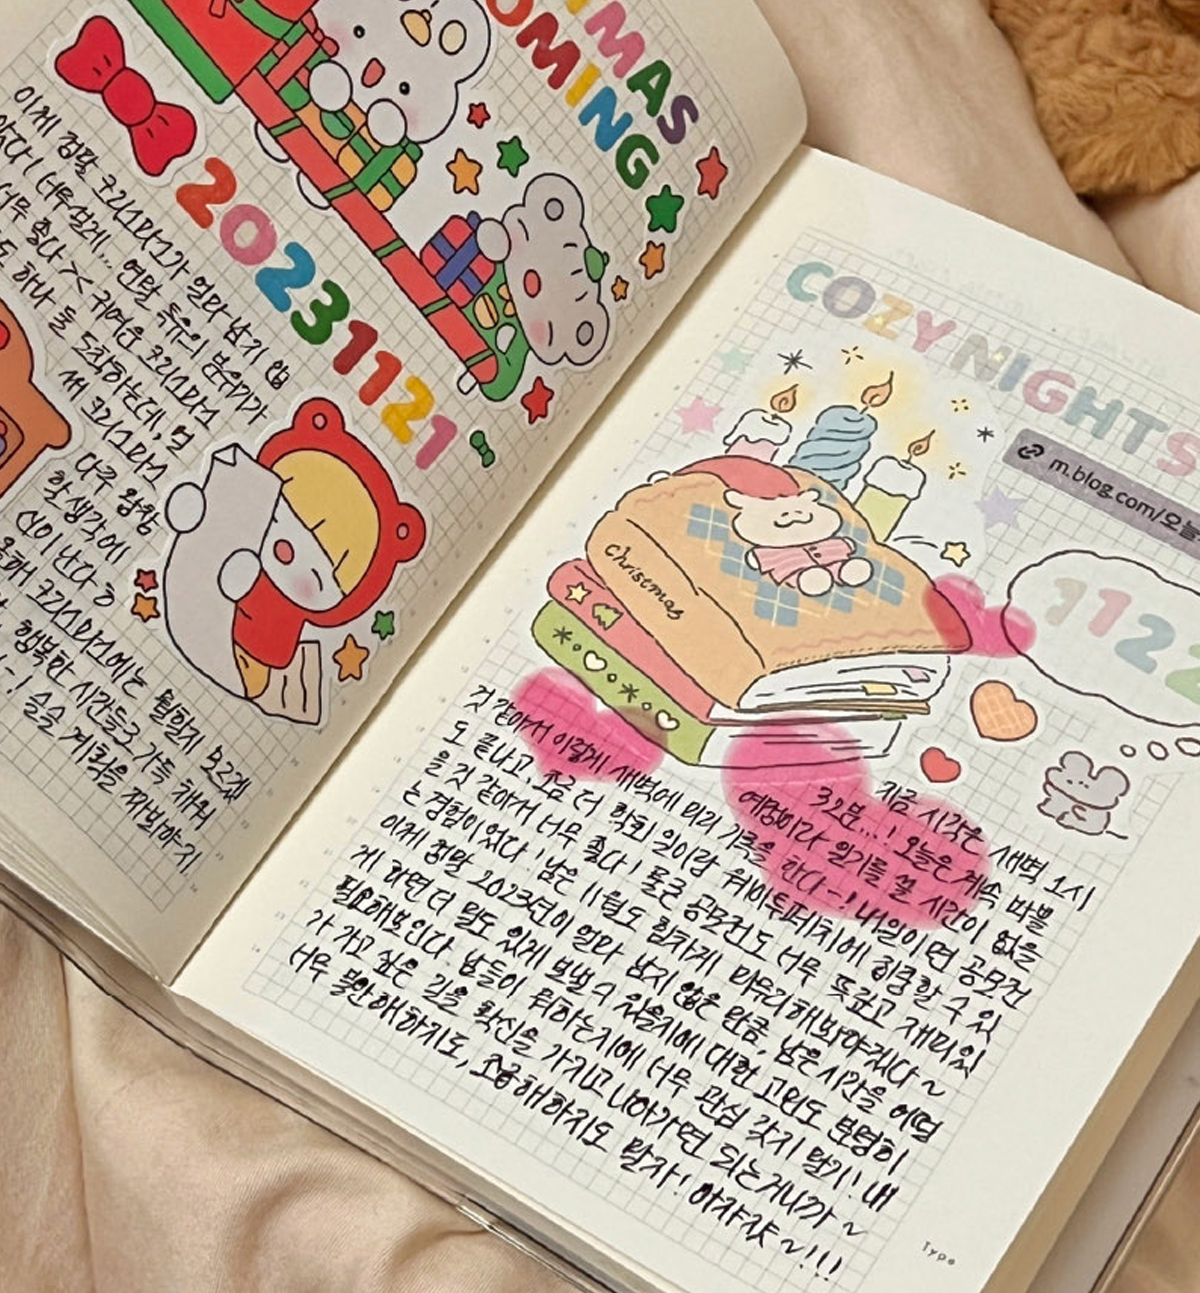 MAS
OMING
20231121
이제 정말 크리스마스가 얼마 남지 않
았다! 너무 설레... 연말 특유의 분위기가
너무 좋다 >< 귀여운 크리스마스
도 하나 둘 도착하는데, 덕
크리스마스
다꾸 왕창
할 생각에
신이 난다 ㅎ
올해 크리스마스에는 뭘할지 모르겠
행복한 시간들로 가득 채워
! 슬슬 계획을 짜봐야지
COZY NIGHTS
m.blog.com/오늘
1122
Christmas
지금 시각은 새벽 1시
32분...! 오늘은 계속 바쁠
예정이라 일기를 쓸 시간이 없을
것 같아서 이렇게 새벽에 미리 기록을 한다-! 내일이면 공모전
도 끝나고, 조금 더 학회 일이랑 집중할 수 있
을 것 같아서 너무 좋다! 물론 공모전도 너무 뜻깊고 재미있
는 경험이었다! 남은 11월도 힘차게 마무리해봐야겠다~
이제 정말 2023년이 얼마 남지 않은 만큼, 남은 시간을 어떻
게 하면 더 밀도 있게 보낼 수 있을지에 대한 고민도 분명히
필요해보인다. 남들이 뭐하는지에 너무 관심 갖지 말기! 내
가 가고 싶은 길을 확신을 가지고 나아가면 되는거니까~
너무 불안해하지도, 조급해하지도 말자! 아자잣~!!!
Typo